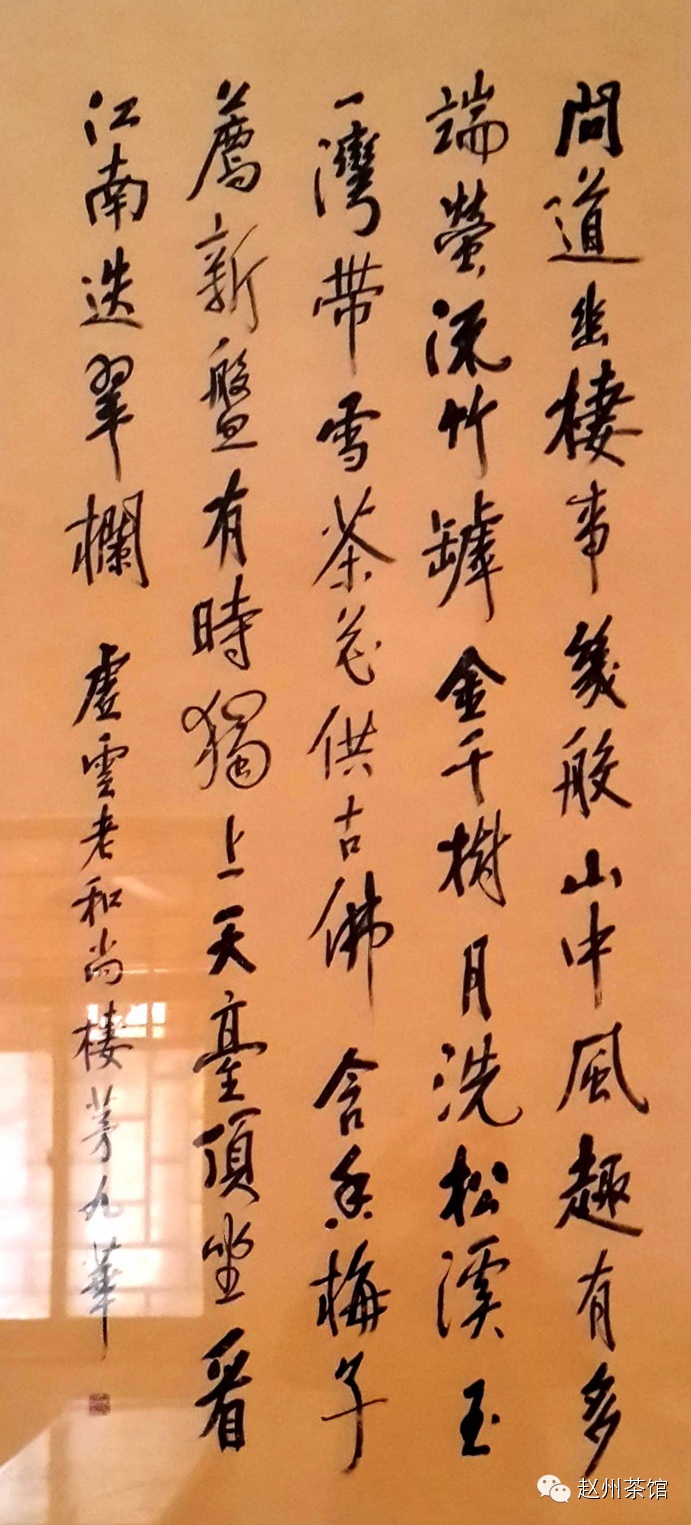 問道幽棲事幾般山中風趣有多
端螢流竹罅金千樹月洗松溪玉
一灣帶雪茶花供古佛含香梅子
薦新盤有時獨上天臺頂坐看
江南迭翠欄
虛雲老和尚棲茅九華
赵州茶馆